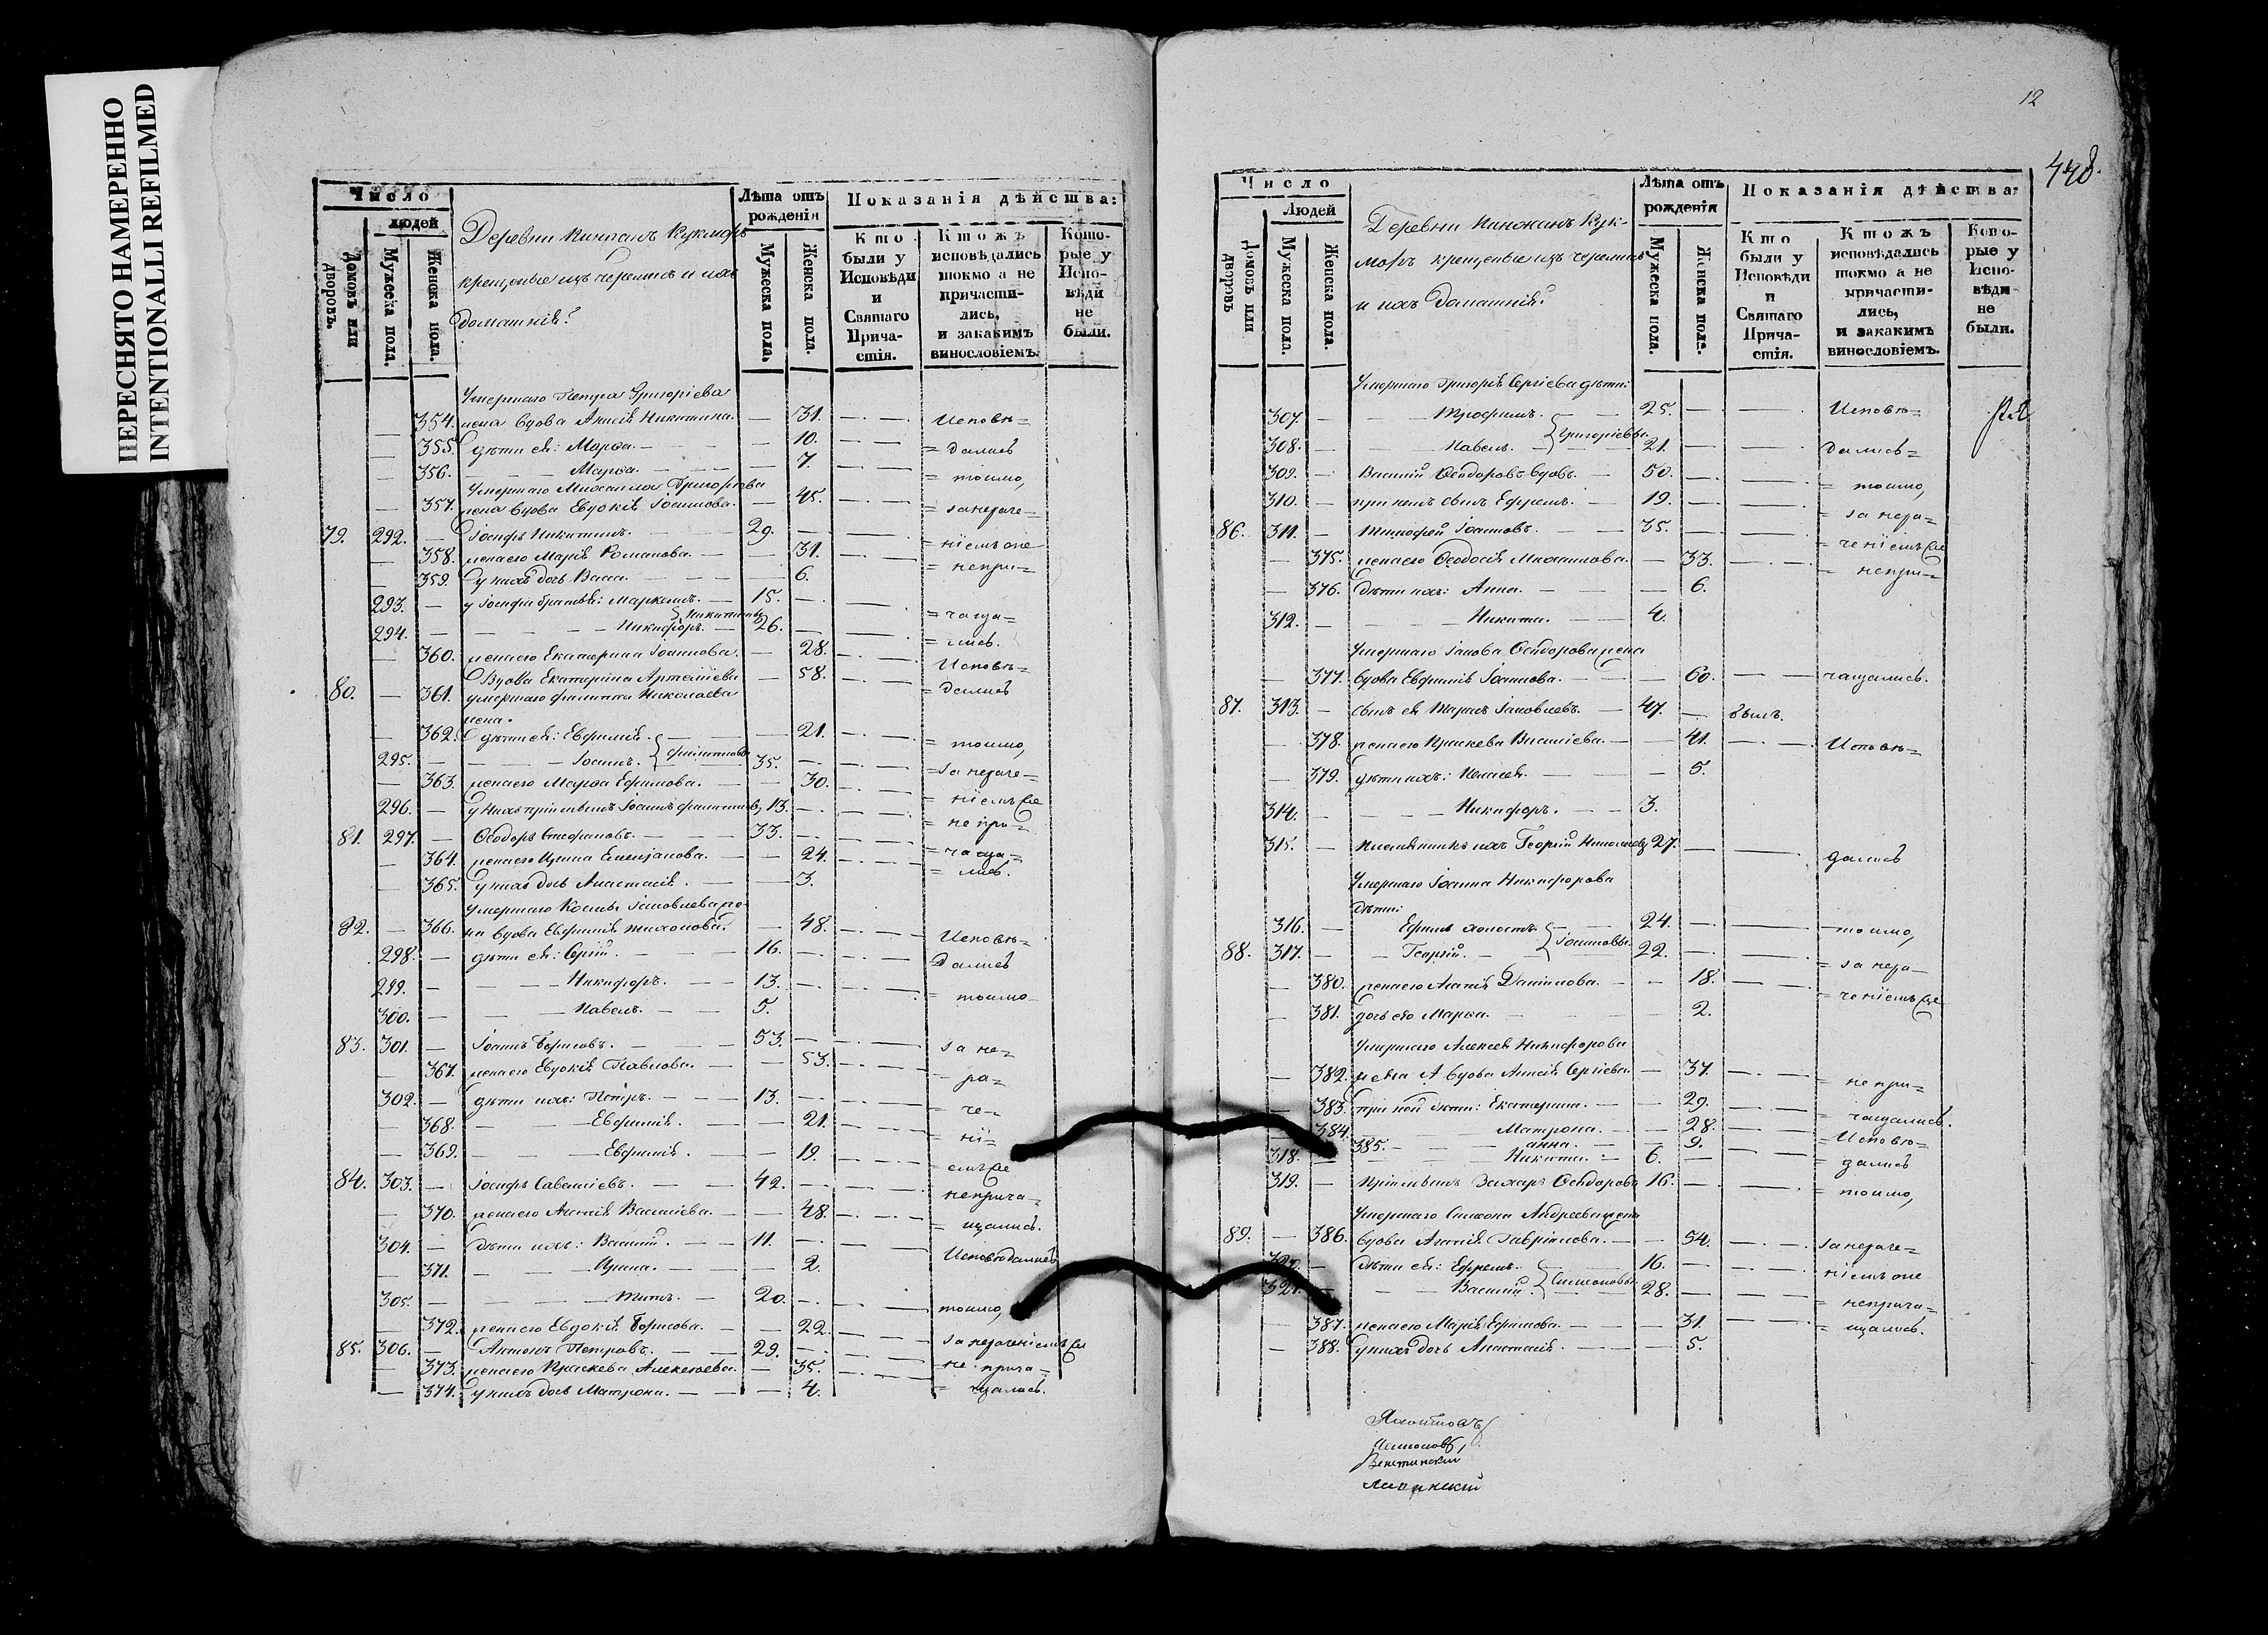 ПЕРЕСНЯТО НАМЕРЕННО
INTENTIONALLI REFILMED
Число
Людей
Домовъ или дворовъ.
Мужеска пола.
Женска пола.
Деревни Кинжанъ Кукморъ
крещеные изъ черемисъ и ихъ
домашнія:
Лѣта отъ рожденія
Мужеска пола.
Женска пола.
Показанія дѣйства:
Кто были у Исповѣди и Святаго Причастія.
Ктожъ исповѣдались токмо а не причастились, и закакимъ винословіемъ.
Которые у Исповѣди не были.
Умершаго Петра Григоріева
354. жена вдова Анисія Никитина. — 31. Исповѣ=
355. дѣти ея: Марѳа. — 10. = дались
356. — Марѳа. — 7. = токмо,
Умершаго Михаила Григорьева
357. жена вдова Евдокія Іоаннова. — 45. = занераче=
79. 292. — Іосифъ Никитинъ. — 29. = ніемъ оне
358. жена его Марія Романова. — 31. = непри=
359. у нихъ дочь Васса. — 6.
293. — у Іосифа братья: Маркелъ. — 15. = чаща=
Никитины
294. — Никифоръ. — 26. = лись.
360. жена его Екатерина Іоаннова. — 28. Исповѣ=
Вдова Екатерина Артеміева — 58.
80. — 361. умершаго Филиппа Николаева = дались
жена.
362. дѣти ея: Евфимія. — 21. = токмо,
295. — Іоаннъ. Филипповы 35.
363. жена его Марѳа Ефимова. — 30. = занераче=
296. — у нихъ пріемышъ Іоаннъ Филипповъ 13. = ніемъ
81. 297. — Ѳеодоръ Стефановъ. — 33. = не при=
364. жена его Ирина Емельянова. — 24. = чаща=
365. у нихъ дочь Анастасія. — 3. = лись.
Умершаго Космы Іаковлева же=
82. — 366. на вдова Евфимія Тихонова. — 48. Исповѣ=
298. — дѣти ея: Сергій. — 16. Дались
299. — Никифоръ. — 13. = токмо
300. — Павелъ. — 5.
83. 301. — Іоаннъ Борисовъ. — 53. за не=
367. жена его Евдокія Павлова. — 53. ра=
302. — дѣти ихъ: Петръ. — 13. = че=
368. — Евфимія. — 21. = ні=
369. — Евфимія. — 19. = емъ
84. 303. — Іосифъ Савельевъ. — 42. неприча=
370. жена его Анисія Васильева. — 48. = щались.
304. — дѣти ихъ: Василій. — 11.
371. — Ирина. — 2. Исповѣдались
305. — Титъ. — 20. токмо,
372. жена его Евдокія Борисова. — 22.
85. 306. — Антонъ Петровъ. — 29. занераченіемъ
373. жена его Праскева Алексѣева. — 35. = не прича=
374. у нихъ дочь Матрона. — 4. = щались.
12
448.
Число
Людей
Домовъ или дворовъ
Мужеска пола.
Женска пола.
Деревни Кинжанъ Кук=
моръ крещеные изъ черемисъ
и ихъ домашнія:
Лѣта отъ рожденія
Мужеска пола.
Женска пола.
Показанія дѣйства:
Кто были у Исповѣди и Святаго Причастія.
Ктожъ исповѣдались токмо а не причастились, и закакимъ винословіемъ.
Которые у Исповѣди не были.
Умершаго Григорія Сергіева дѣти:
307. — Трофимъ. — 25. Исповѣ=
Григорьевы.
308. — Павелъ. — 21. Дались=
309. — Василій Ѳеодоровъ вдовъ. — 50. = токмо,
310. — при немъ сынъ Ефремъ. — 19. = за нера=
86. 311. — Тимоѳей Іоанновъ. — 35. = ченіемъ
375. жена его Ѳеодосія Михаилова. — 33. = непри=
376. Дѣти ихъ: Анна. — 6.
312. — Никита. — 4.
Умершаго Іакова Ѳеодорова жена
377. вдова Евфимія Іоаннова. — 60. чащались.
87. 313. — сынъ ея Маркъ Іаковлевъ. — 47. — былъ.
378. жена его Праскева Васильева. — 41. Исповѣ=
379. дѣти ихъ: Пелагея. — 5.
314. — Никифоръ. — 3.
315. — племянникъ ихъ Георгій Николаевъ 27. дались
Умершаго Іоанна Никифорова
дѣти:
316. — Ефимъ холостъ. — 24. токмо,
Іоанновы.
88. 317. — Георгій. — 22. = за нера=
380. жена его Анисія Даниилова. — 18. = ченіемъ
381. дочь его Марѳа. — 2.
Умершаго Алексѣя Никифорова
382. жена вдова Анисія Сергіева. — 37. = не при=
383. при ней дѣти: Екатерина. — 29. = чащались.
384. — Матрона. — 28. = Исповѣ=
385. — анна. — 9.
318. — Никита. — 6. = дались
319. — Пріемышъ Захаръ Ѳеодоровъ 16. = токмо,
Умершаго Симеона Андреева жена
89. — 386. вдова Анисія Гавриилова. — 54. занераче=
320. — дѣти ея: Ефремъ. — 16. ніемъ оне
Симеоновы
321. — Василій. — 28. = неприча=
387. жена его Марія Ефимова. — 31. = щались.
388. у нихъ дочь Анастасія. — 5.